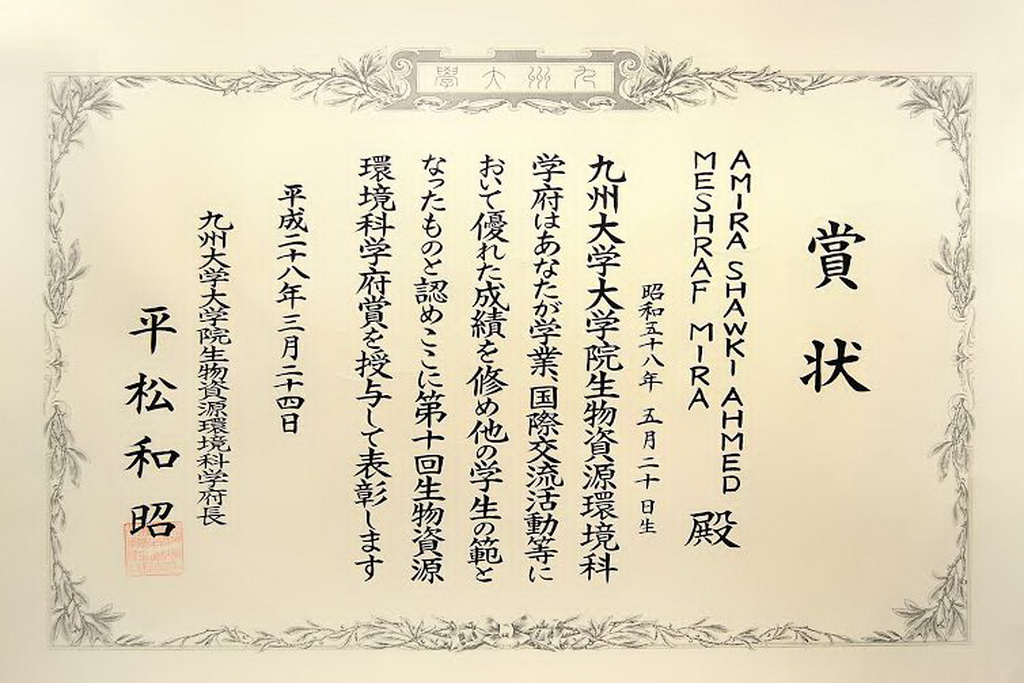 九州大學
賞状
AMIRA SHAWKI AHMED
MESHRAF MIRA 殿
昭和五十八年 五月二十日生
九州大学大学院生物資源環境科
学府はあなたが学業、国際交流活動等に
おいて優れた成績を修め他の学生の範と
なったものと認めここに第十回生物資源
環境科学府賞を授与して表彰します
平成二十八年 三月二十四日
九州大学大学院生物資源環境科学府長
平松和昭